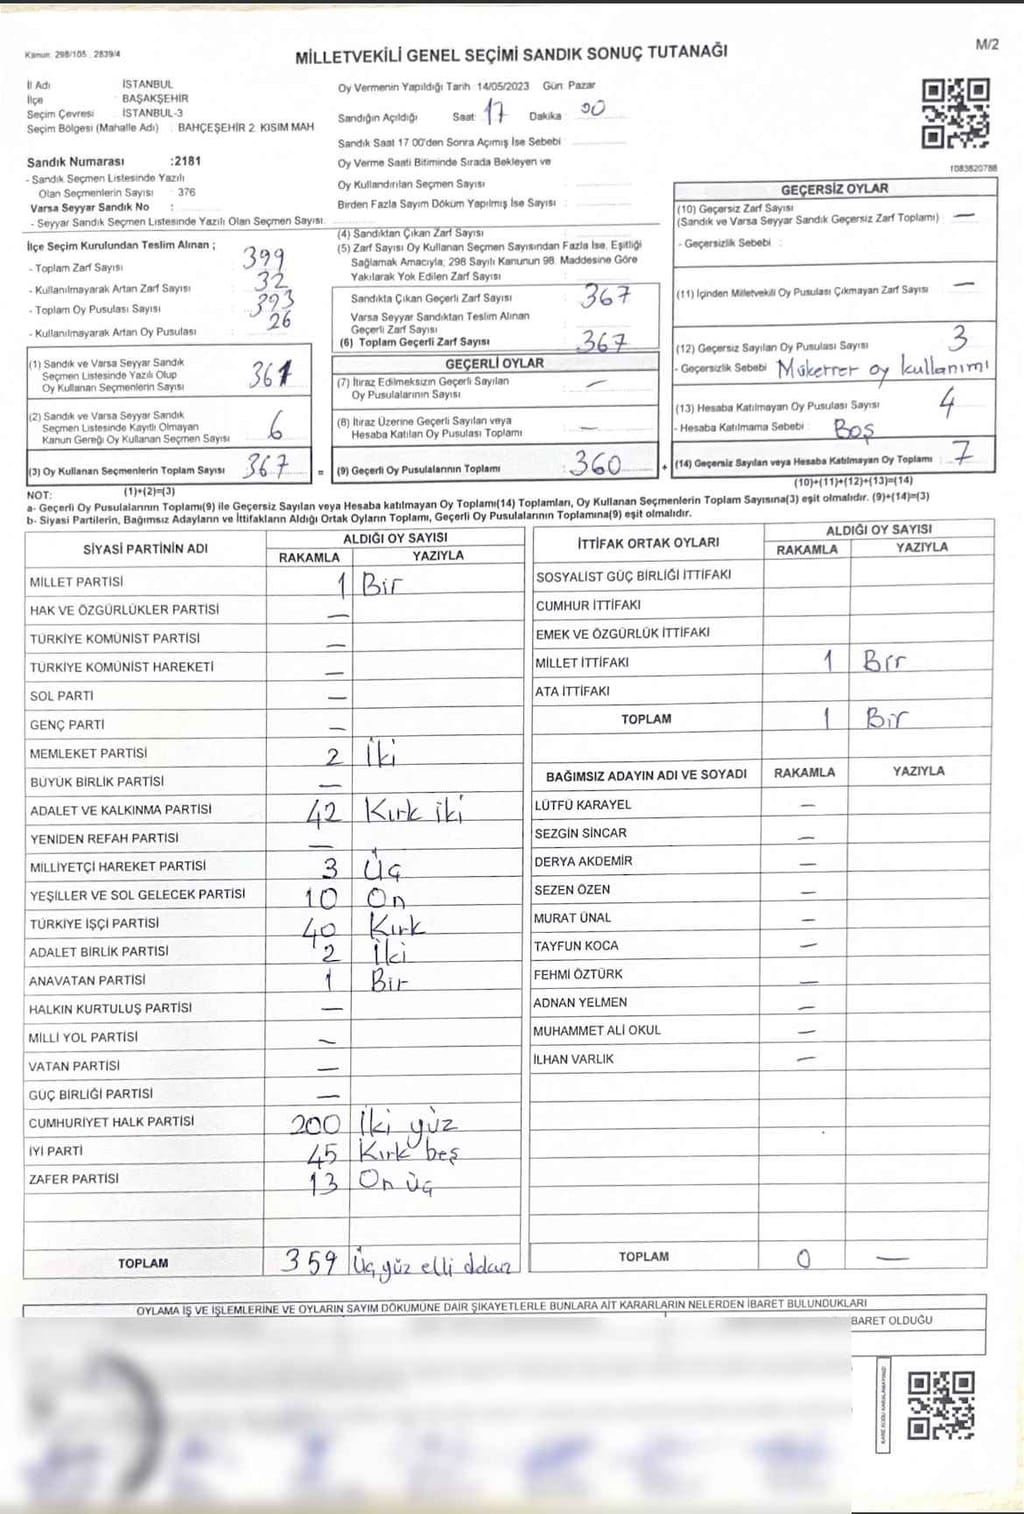 Kanun: 298/105 , 2839/4
MİLLETVEKİLİ GENEL SEÇİMİ SANDIK SONUÇ TUTANAĞI
M/2
İl Adı İSTANBUL
İlçe BAŞAKŞEHİR
Seçim Çevresi İSTANBUL-3
Seçim Bölgesi (Mahalle Adı) : BAHÇEŞEHİR 2. KISIM MAH
Sandık Numarası :2181
- Sandık Seçmen Listesinde Yazılı
Olan Seçmenlerin Sayısı : 376
Varsa Seyyar Sandık No :
- Seyyar Sandık Seçmen Listesinde Yazılı Olan Seçmen Sayısı:
Oy Vermenin Yapıldığı Tarih 14/05/2023 Gün: Pazar
Sandığın Açıldığı Saat: 17 Dakika 00
Sandık Saat 17:00'den Sonra Açımış İse Sebebi :
Oy Verme Saati Bitiminde Sırada Bekleyen ve
Oy Kullandırılan Seçmen Sayısı
Birden Fazla Sayım Döküm Yapılmış İse Sayısı :
1083620788
İlçe Seçim Kurulundan Teslim Alınan ;
- Toplam Zarf Sayısı 399
- Kullanılmayarak Artan Zarf Sayısı : 32
- Toplam Oy Pusulası Sayısı 393
- Kullanılmayarak Artan Oy Pusulası 26
(1) Sandık ve Varsa Seyyar Sandık
Seçmen Listesinde Yazılı Olup
Oy Kullanan Seçmenlerin Sayısı 361
(2) Sandık ve Varsa Seyyar Sandık
Seçmen Listesinde Kayıtlı Olmayan
Kanun Gereği Oy Kullanan Seçmen Sayısı 6
(3) Oy Kullanan Seçmenlerin Toplam Sayısı : 367
(1)+(2)=(3)
(4) Sandıktan Çıkan Zarf Sayısı
(5) Zarf Sayısı Oy Kullanan Seçmen Sayısından Fazla İse, Eşitliği
Sağlamak Amacıyla; 298 Sayılı Kanunun 98. Maddesine Göre
Yakılarak Yok Edilen Zarf Sayısı :
Sandıkta Çıkan Geçerli Zarf Sayısı : 367
Varsa Seyyar Sandıktan Teslim Alınan
Geçerli Zarf Sayısı
(6) Toplam Geçerli Zarf Sayısı : 367
GEÇERLİ OYLAR
(7) İtiraz Edilmeksizin Geçerli Sayılan
Oy Pusulalarının Sayısı : —
(8) İtiraz Üzerine Geçerli Sayılan veya
Hesaba Katılan Oy Pusulası Toplamı : —
= (9) Geçerli Oy Pusulalarının Toplamı : 360 +
GEÇERSİZ OYLAR
(10) Geçersiz Zarf Sayısı
(Sandık ve Varsa Seyyar Sandık Geçersiz Zarf Toplamı) : —
- Geçersizlik Sebebi :
(11) İçinden Milletvekili Oy Pusulası Çıkmayan Zarf Sayısı : —
(12) Geçersiz Sayılan Oy Pusulası Sayısı : 3
- Geçersizlik Sebebi Mükerrer oy kullanımı
(13) Hesaba Katılmayan Oy Pusulası Sayısı : 4
- Hesaba Katılmama Sebebi : Boş
(14) Geçersiz Sayılan veya Hesaba Katılmayan Oy Toplamı : 7
(10)+(11)+(12)+(13)=(14)
NOT:
a- Geçerli Oy Pusulalarının Toplamı(9) ile Geçersiz Sayılan veya Hesaba katılmayan Oy Toplamı(14) Toplamları, Oy Kullanan Seçmenlerin Toplam Sayısına(3) eşit olmalıdır. (9)+(14)=(3)
b- Siyasi Partilerin, Bağımsız Adayların ve İttifakların Aldığı Ortak Oyların Toplamı, Geçerli Oy Pusulalarının Toplamına(9) eşit olmalıdır.
SİYASİ PARTİNİN ADI
ALDIĞI OY SAYISI
RAKAMLA YAZIYLA
MİLLET PARTİSİ 1 Bir
HAK VE ÖZGÜRLÜKLER PARTİSİ —
TÜRKİYE KOMÜNİST PARTİSİ —
TÜRKİYE KOMÜNİST HAREKETİ —
SOL PARTİ —
GENÇ PARTİ —
MEMLEKET PARTİSİ 2 İki
BÜYÜK BİRLİK PARTİSİ —
ADALET VE KALKINMA PARTİSİ 42 Kırk iki
YENİDEN REFAH PARTİSİ —
MİLLİYETÇİ HAREKET PARTİSİ 3 Üç
YEŞİLLER VE SOL GELECEK PARTİSİ 10 On
TÜRKİYE İŞÇİ PARTİSİ 40 Kırk
ADALET BİRLİK PARTİSİ 2 İki
ANAVATAN PARTİSİ 1 Bir
HALKIN KURTULUŞ PARTİSİ —
MİLLİ YOL PARTİSİ —
VATAN PARTİSİ —
GÜÇ BİRLİĞİ PARTİSİ —
CUMHURİYET HALK PARTİSİ 200 İki yüz
İYİ PARTİ 45 Kırk beş
ZAFER PARTİSİ 13 On üç
TOPLAM 359 Üç yüz elli dokuz
İTTİFAK ORTAK OYLARI
ALDIĞI OY SAYISI
RAKAMLA YAZIYLA
SOSYALİST GÜÇ BİRLİĞİ İTTİFAKI
CUMHUR İTTİFAKI
EMEK VE ÖZGÜRLÜK İTTİFAKI
MİLLET İTTİFAKI 1 Bir
ATA İTTİFAKI
TOPLAM 1 Bir
BAĞIMSIZ ADAYIN ADI VE SOYADI RAKAMLA YAZIYLA
LÜTFÜ KARAYEL —
SEZGİN SİNCAR —
DERYA AKDEMİR —
SEZEN ÖZEN —
MURAT ÜNAL —
TAYFUN KOCA —
FEHMİ ÖZTÜRK —
ADNAN YELMEN —
MUHAMMET ALİ OKUL —
İLHAN VARLIK —
TOPLAM 0 —
OYLAMA İŞ VE İŞLEMLERİNE VE OYLARIN SAYIM DÖKÜMÜNE DAİR ŞİKAYETLERLE BUNLARA AİT KARARLARIN NELERDEN İBARET BULUNDUKLARI
BARET OLDUĞU